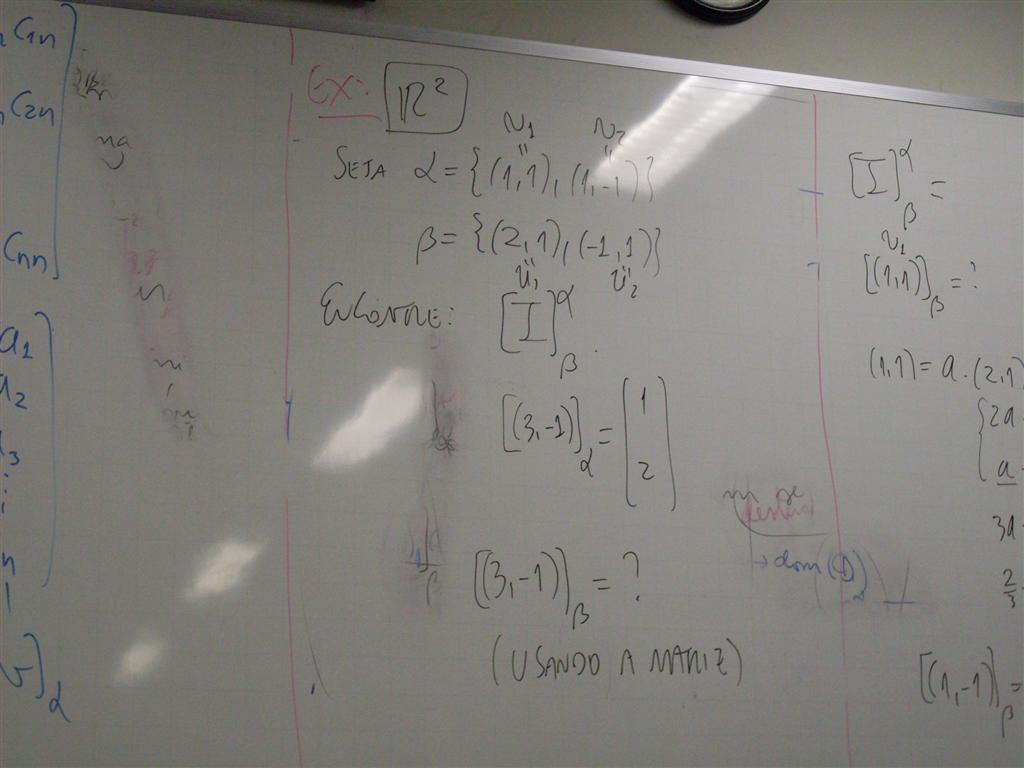 C1n
C2n
Cnn
a1
a2
Ex: ℝ²
v1 v2
SEJA α = {(1,1), (1,-1)}
β = {(2,1), (-1,1)}
u1 u2
ENCONTRE: [I]^α_β.
[(3,-1)]_α = (1
2)
[(3,-1)]_β = ?
(USANDO A MATRIZ)
dom(
β
v]_α
[I]^α_β =
v1
[(1,1)]_β = ?
(1,1) = a.(2,1)
{2a
a
3a
2/3
[(1,-1)]_β =